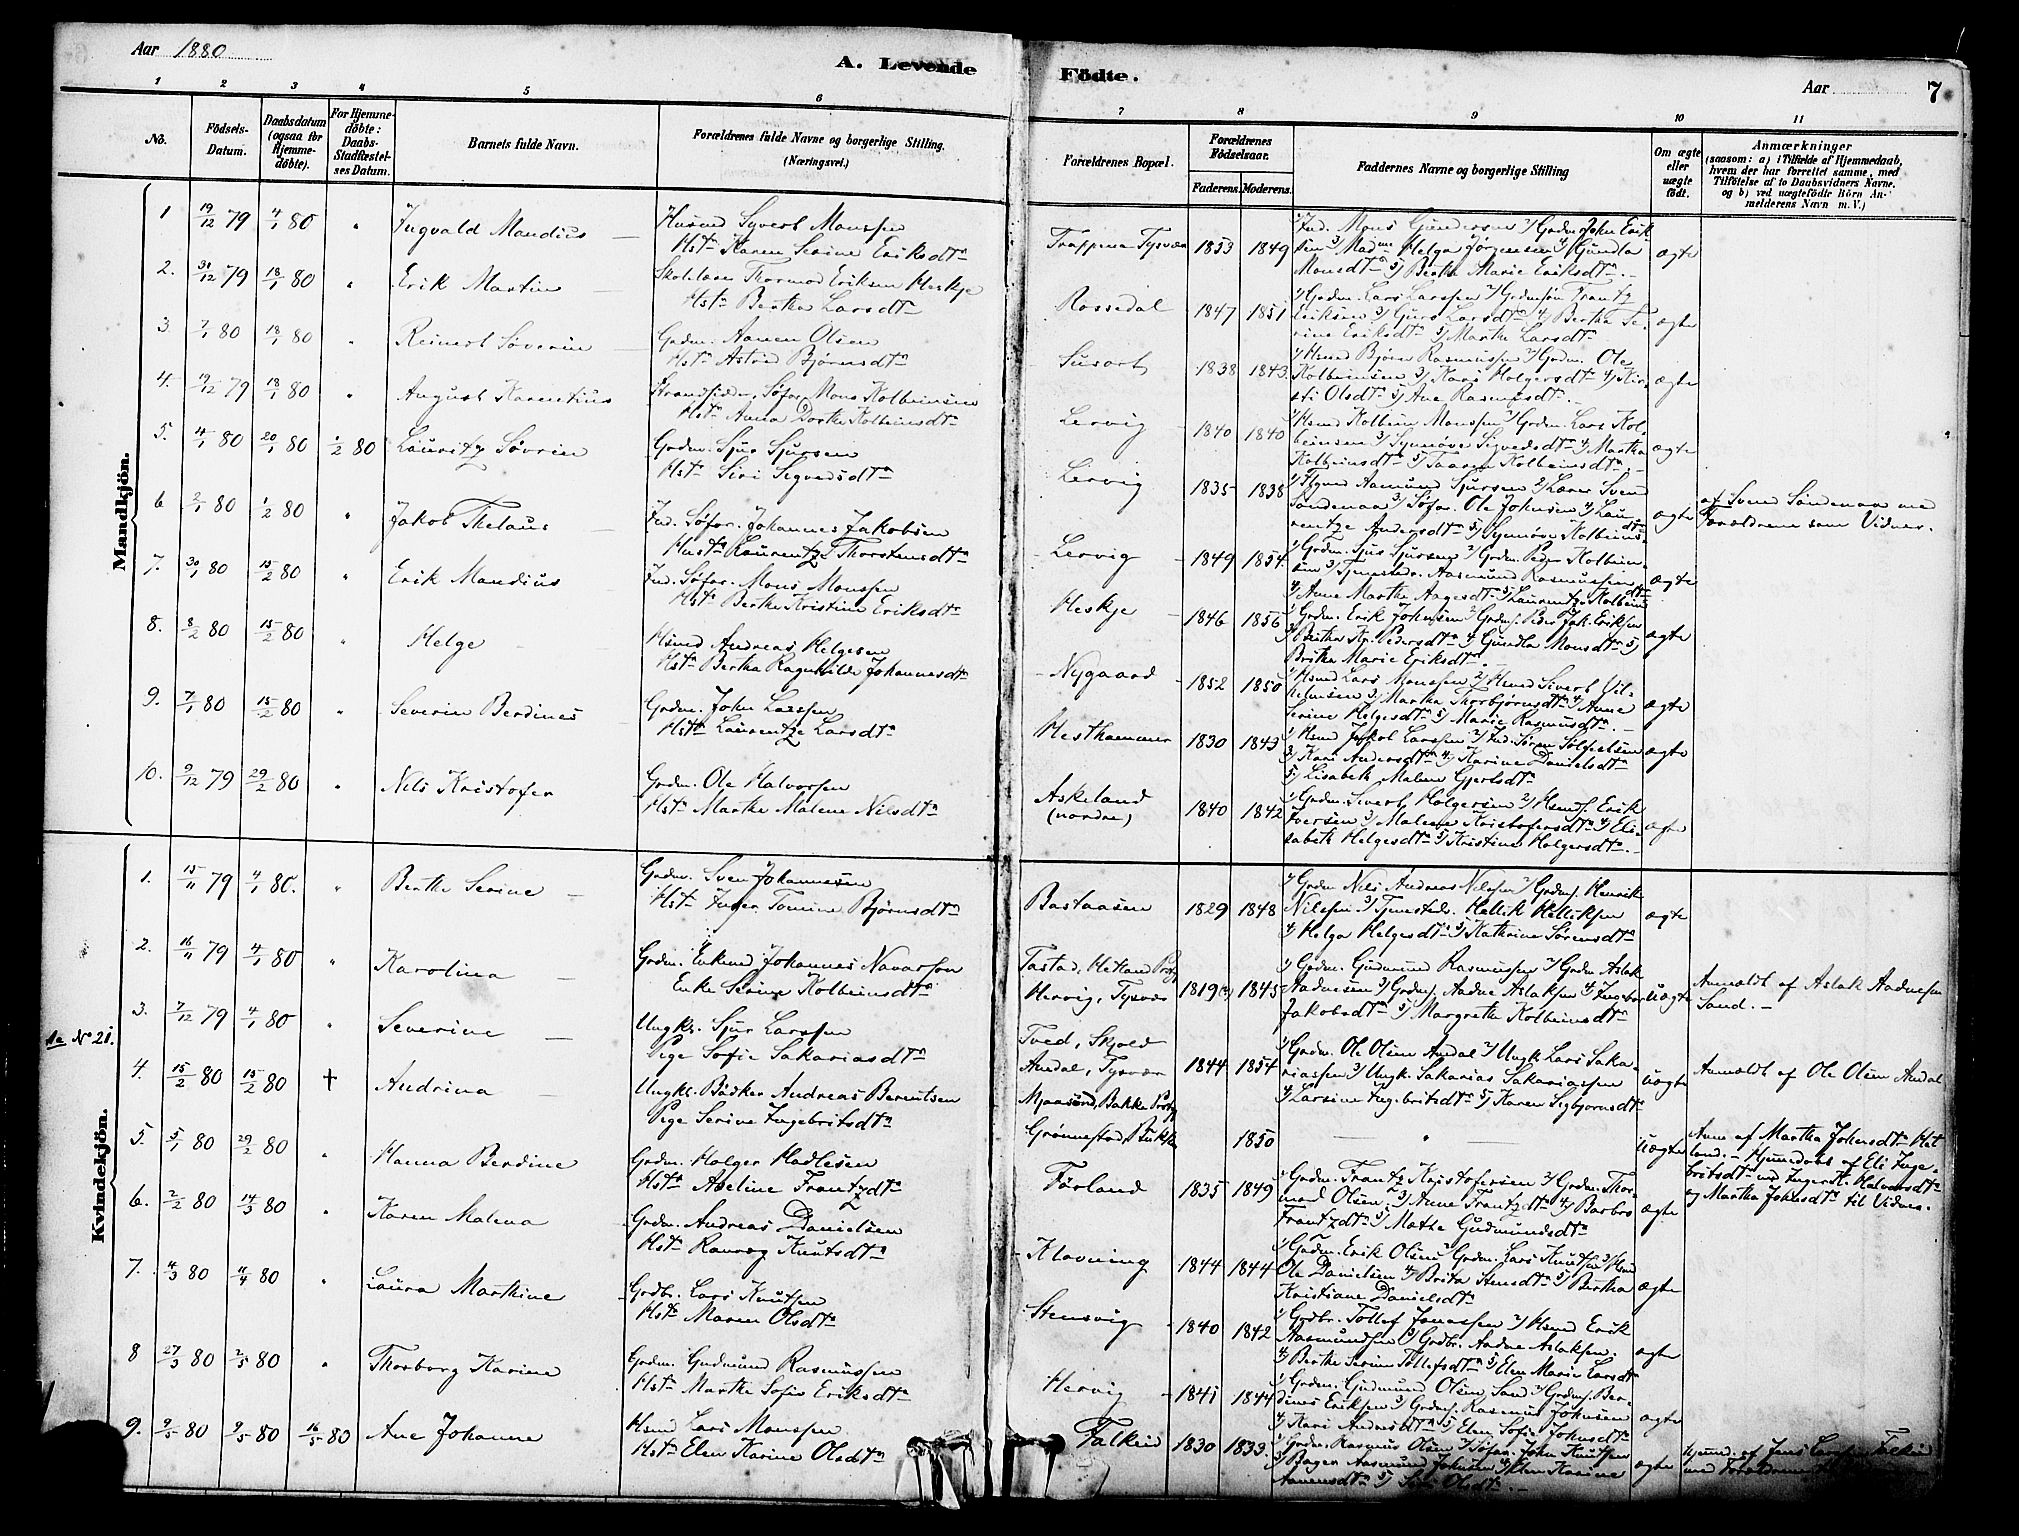 Aar 1880
A. Levende
Födte.
Aar
7
1 2 3 4 5 6 7 8 9 10 11
No.
Födsels-Datum.
Daabsdatum (ogsaa for Hjemmedöbte).
For Hjemmedöbte: Daabs-Stadfæstelses Datum.
Barnets fulde Navn.
Forældrenes fulde Navne og borgerlige Stilling.
(Næringsvei.)
Forældrenes Bopæl.
Forældrenes Födselsaar.
Faderens. Moderens.
Faddernes Navne og borgerlige Stilling
Om ægte eller uægte födt.
Anmærkninger
(saasom: a) i Tilfælde af Hjemmedaab,
hvem der har forrettet samme, med
Tilföielse af to Daabsvidners Navne,
og b) ved uægtefödte Börn Anmelderens Navn m. V.)
Mandkjön.
1 19/12 79 4/1 80 " Ingvald Mandius
Husmd Syvert Monssen
Hst. Karen Serine Eriksdtr
Trappena Tysvær 1853 1849
Ind. Mons Gundersen 2/ Grdm John Erik-
sen 3/ Madm Helga Jørgensen 4/ Gundla
Monsdtr 5/ Berthe Marie Eriksdtr
ægte
2. 30/12 79 18/1 80 " Erik Martin
Skolelærer Thormod Eriksen Heskje
Hst. Bertha Larsdtr
Rossedal 1847 1851
1/ Grdm. Lars Larssen 2/ Grdmsøn Frantz
Eriksen 3/ Guro Larsdtr 4/ Bertha Se-
rine Eriksdtr 5/ Martha Larsdtr
ægte
3. 7/1 80 18/1 80 " Reinert Søverin
Grdm. Aanen Olsen
Hst. Astrid Bjørnsdtr
Susort 1838 1843
1/ Hsmd Bjørn Rasmussen 2/ Grdm. Ole
Kolbeinsen 3/ Kari Holgersdtr 4/ Kir-
sti Olsdtr 5/ Ane Rasmusdtr
ægte
4. 19/12 79 18/1 80 " August Karentius
Strandsidder, Søfar. Mons Kolbeinsen
Hst. Anna Dorthe Kolbeinsdtr
Lervig 1840 1840
1/ Hsmd Kolbein Monssen 2/ Grdm. Lars Kol-
beinsen 3/ Synnøve Sigvedsdtr 4/ Martha
Kolbeinsdtr 5/ Taaren Kolbeinsdtr
ægte
5. 4/1 80 20/1 80 1/2 80 Lauritz Søvrin
Grdm. Sjur Sjursen
Hst. Siri Segvedsdtr
Lervig 1835 1838
Aamund Sjursen 2/ Lærer Svend
Søndenaa 3/ Søfar. Ole Johnsen 4/ Lau-
rentze Andersdtr 5/ Synnøve Kolbeinsdtr
ægte
af Svend Søndenaa med
Forældrene som Vidner.
6 2/1 80 1/2 80 " Jakob Thelaus
Ind. Søfar. Johannes Jakobsen
Hust. Laurentze Thorstensdtr
Lervig 1849 1854
1/ Grdm. Sjur Sjursen 2/ Grdm. Peder Kolbein-
sen 3/ Tjenestedr. Aasmund Rasmussen
4/ Anne Marthe Aagesdtr 5/ Laurentze Kolbeinsdtr
ægte
7. 30/1 80 15/2 80 " Erik Mandius
Ind. Søfar. Mons Monssen
Hst. Berthe Kristine Eriksdtr
Heskje 1846 1856
1/ Grdm. Erik Johnsen 2/ Grdmsj. Peder Joh. Eriksen
3/ Brithe Kr. Pedersdtr 4/ Gundla Monsdtr 5/
Brithe Marie Eriksdtr
ægte
8. 8/2 80 15/2 80 " Helge
Hsmd Andreas Helgesen
Hst. Bertha Ragnhilde Johannesdtr
Nygaard 1852 1850
1/ Hsmd Lars Monssen 2/ Hsmd Sivert Vil-
helmsen 3/ Martha Thorbjørnsdtr 4/ Anne
Serine Helgesdtr 5/ Marie Rasmusdtr
ægte
9. 7/1 80 15/2 80 " Severin Berdines
Grdm. John Larssen
Hst. Laurentze Larsdtr
Hesthammer 1830 1843
1/ Hsmd Jakob Larssen 2/ Ind. Søren Solfestsen
3/ Kari Andersdtr 4/ Karine Danielsdtr
5/ Lisabeth Malene Gjertsdtr
ægte
10. 9/12 79 29/2 80 " Nils Kristofer
Grdm. Ole Halvorsen
Hst. Marthe Malene Nilsdtr
Askeland (nordre) 1840 1842
1/ Grdm. Sivert Holgersen 2/ Hsmdsj. Erik
Iversen 3/ Malene Kristofersdtr 4/ Eli-
sabeth Helgesdtr 5/ Kristine Holgersdtr
ægte
Kvindekjön.
1. 15/11 79 4/1 80. " Berthe Serine
Grdm. Sven Johannesen
Hst. Inger Tomine Bjørnsdtr
Bastaasen 1829 1848
1/ Grdm Nils Andreas Nilssen 2/ Grdmsj. Henrik
Nilssen 3/ Tjenestedr. Hellik Helliksen
4/ Helga Helgesdtr 5/ Kathrine Sørensdtr
ægte
2. 16/11 79 4/1 80 " Karolina
Grdm. Enkemd Johannes Navarson
Enke Serine Kolbeinsdtr
Tastad, Hetland Prstg
Hervig, Tysvær 1819 1845
1/ Grdm. Gudmund Rasmussen 2/ Grdm Aslak
Aadnesen 3/ Grdmsj. Aadne Aslaksen 4/ Ingebor
Jakobsdtr 5/ Margrethe Kolbeinsdtr
uægte
Anmeldt af Aslak Aadnesen
Sand.
3. 7/12 79 4/1 80 " Severine
Ungkr. Sjur Larssen
Pige Sofie Sakariasdtr
Tved, Skjold
Amdal, Tysvær 1844 1854
1/ Grdm. Ole Olsen Amdal 2/ Ungk Lars Saka-
riassen 3/ Ungk. Sakarias Sakariassen
4/ Larsine Ingebritsdtr 5/ Karen Sigbjørnsdtr
uægte
Anmeldt af Ole Olsen Amdal
1a No 21.
4. 15/2 80 15/2 80 † Andrina
Ungkr. Bødker Andreas Berentsen
Pige Serine Ingebritsdtr
Mjaasund, Bakke Prstg
Grønnestad, Bukken 1850
uægte
Anm af Martha Johnsdtr Het-
land. Hjemdøbt af Eli Inge-
britsdtr med Inger K. Halvorsdtr
og Martha Johnsdtr til Vidner.
5. 5/1 80 29/2 80 " Hanna Berdine
Grdm. Holger Hadlesen
Hst. Abeline Frantzdtr
Førland 1835 1849
1/ Grdm. Frantz Kristofersen 2/ Grdm. Thor-
mod Olsen 3/ Anne Frantzdtr 4/ Barbro
Frantzdtr 5/ Mathe Gudmundsdtr
ægte
6. 2/2 80 14/3 80 " Karen Malena
Grdm. Andreas Danielsen
Hst. Ranveg Knutsdtr
Klovning 1844 1844
1/ Grdm. Erik Olsen 2/ Grdm. Lars Knutsen 3/ Hsmd
Ole Danielsen 4/ Brita Stensdtr 5/ Bertha
Kristiane Danielsdtr
ægte
7. 4/3 80 11/4 80 " Laura Marthine
Grdbr. Lars Knutsen
Hst. Maren Olsdtr
Stensvig 1840 1842
1/ Grdbr. Tollef Jonassen 2/ Hsmd Erik
Aasmundsen 3/ Grdbr. Aadne Aslaksen.
4/ Berthe Serine Tollefsdtr 5/ Elen Marie Larsdtr
ægte
8 27/3 80 2/5 80 " Thorborg Karine
Grdm. Gudmund Rasmussen
Hst. Marthe Sofie Eriksdtr
Hervig 1841 1844
1/ Grdm. Gudmund Olsen Sand 2/ Grdmsj. Ber-
dines Eriksen 3/ Grdmsj. Rasmus Johnsen
4/ Kari Andersdtr 5/ Elen Sofie Johnsdtr
ægte
9. 9/5 80 9/5 80 16/5 80 Ane Johanne
Hsmd Lars Monssen
Hst. Elen Karine Olsdtr
Falkeid 1830 1833
1/ Grdm. Rasmus Olsen 2/ Søfar. John Knutsen
3/ Bager Aasmund Johnsen 4/ Elen Karine
Aanensdtr 5/ Olsdtr
ægte
Hjemd. af Jens Larssen Falkeid
med Forældrene